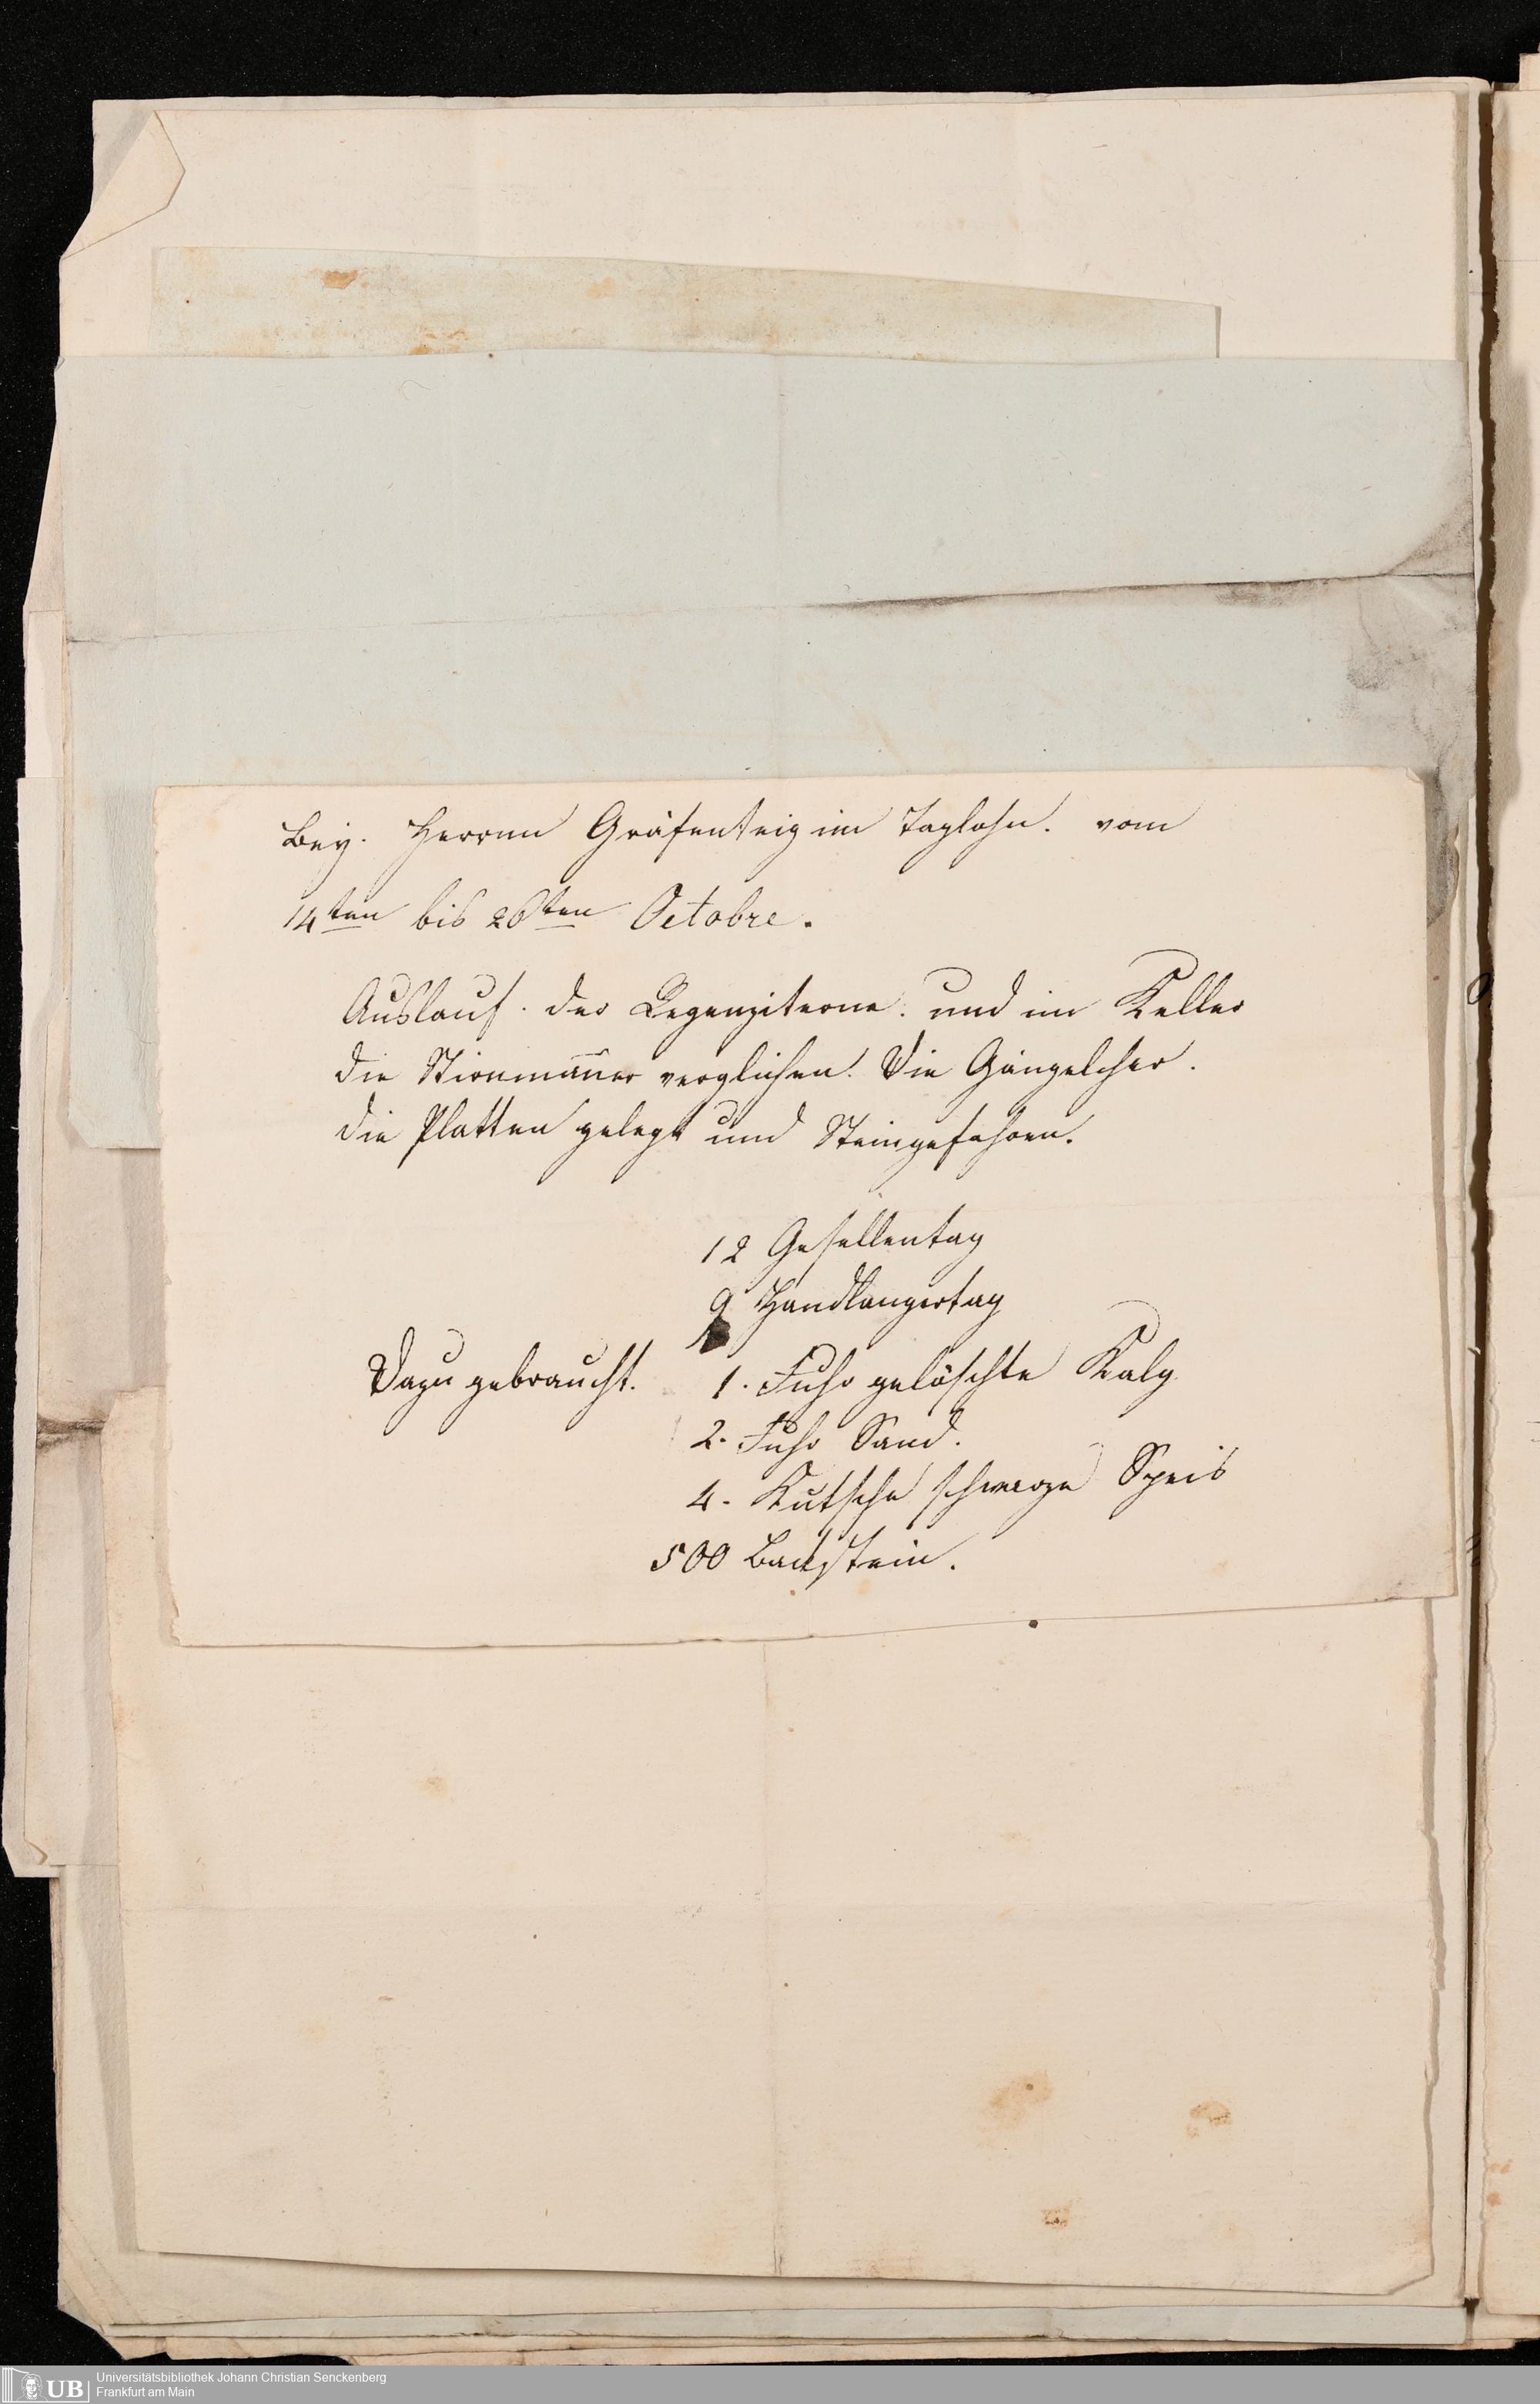 Bey. Herrnn Gräfenteig im Taglohn. vom
14ten bis 26ten Octobre.
Auslauf. der Regenziterne. und im Keller
die Stirnmauer verglichen. Die Gängelcher.
die Platten gelegt und Steingefahren.
12 Gesellentag
9 Handlangertag
Dazu gebraucht. 1. Fuhr gelöschte Kalg
2. Fuhr Sand.
4. Kutsche schwarze Speis
500 Backstein.
UB Universitätsbibliothek Johann Christian Senckenberg
Frankfurt am Main